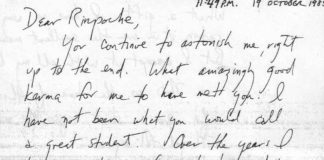 11:49 P.M. 19 OCTOBER 198
Dear Rinpoche,
You continue to astonish me, right
up to the end. What amazingly good
karma for me to have met you. I
have not been what you would call
a great student. Over the years I